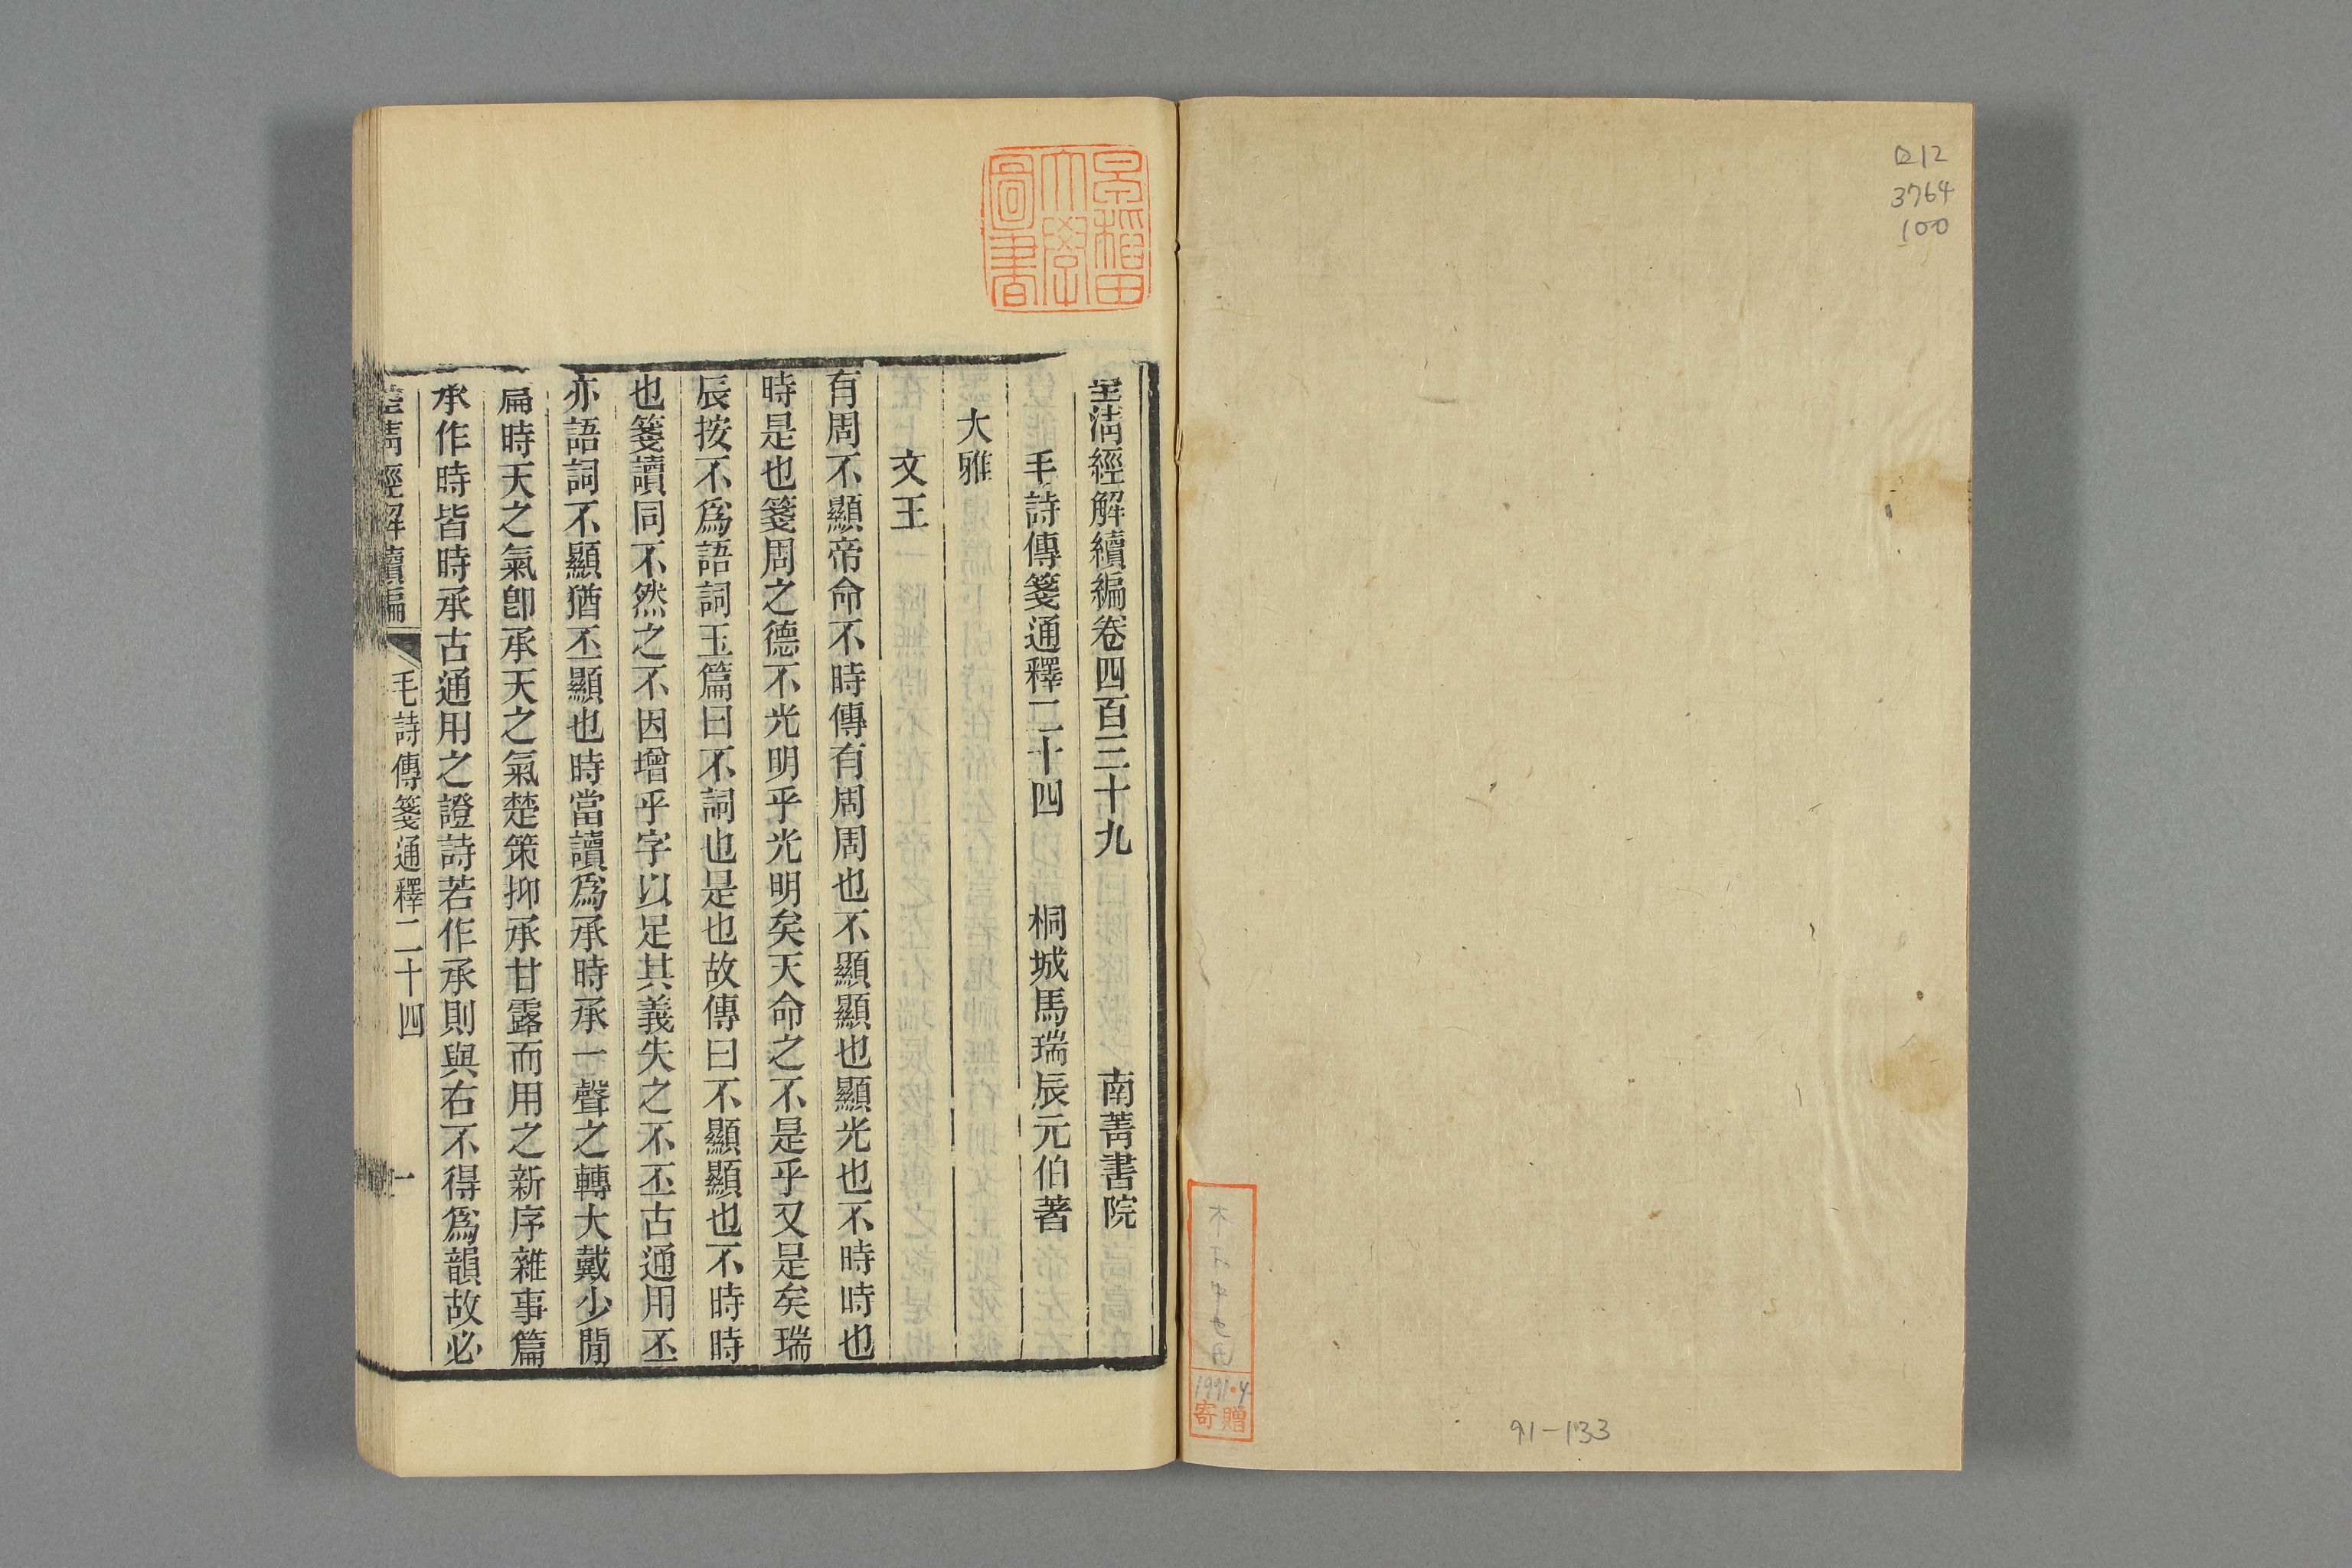 口12
3764
100
91-133
1991.4
寄贈
早稲田
大學
圖書
皇清經解續編卷四百三十九 南菁書院
毛詩傳箋通釋二十四 桐城馬瑞辰元伯著
大雅
文王
有周不顯帝命不時傳有周周也不顯顯也顯光也不時時也
時是也箋周之德不光明乎光明矣天命之不是乎又是矣瑞
辰按不爲語詞玉篇曰不詞也是也故傳曰不顯顯也不時時
也箋讀同不然之不因增乎字以足其義失之不丕古通用丕
亦語詞不顯猶丕顯也時當讀爲承時承一聲之轉大戴少閒
扁時天之氣卽承天之氣楚策抑承甘露而用之新序雜事篇
承作時皆時承古通用之證詩若作承則與右不得爲韻故必
皇清經解續編 毛詩傳箋通釋二十四 一